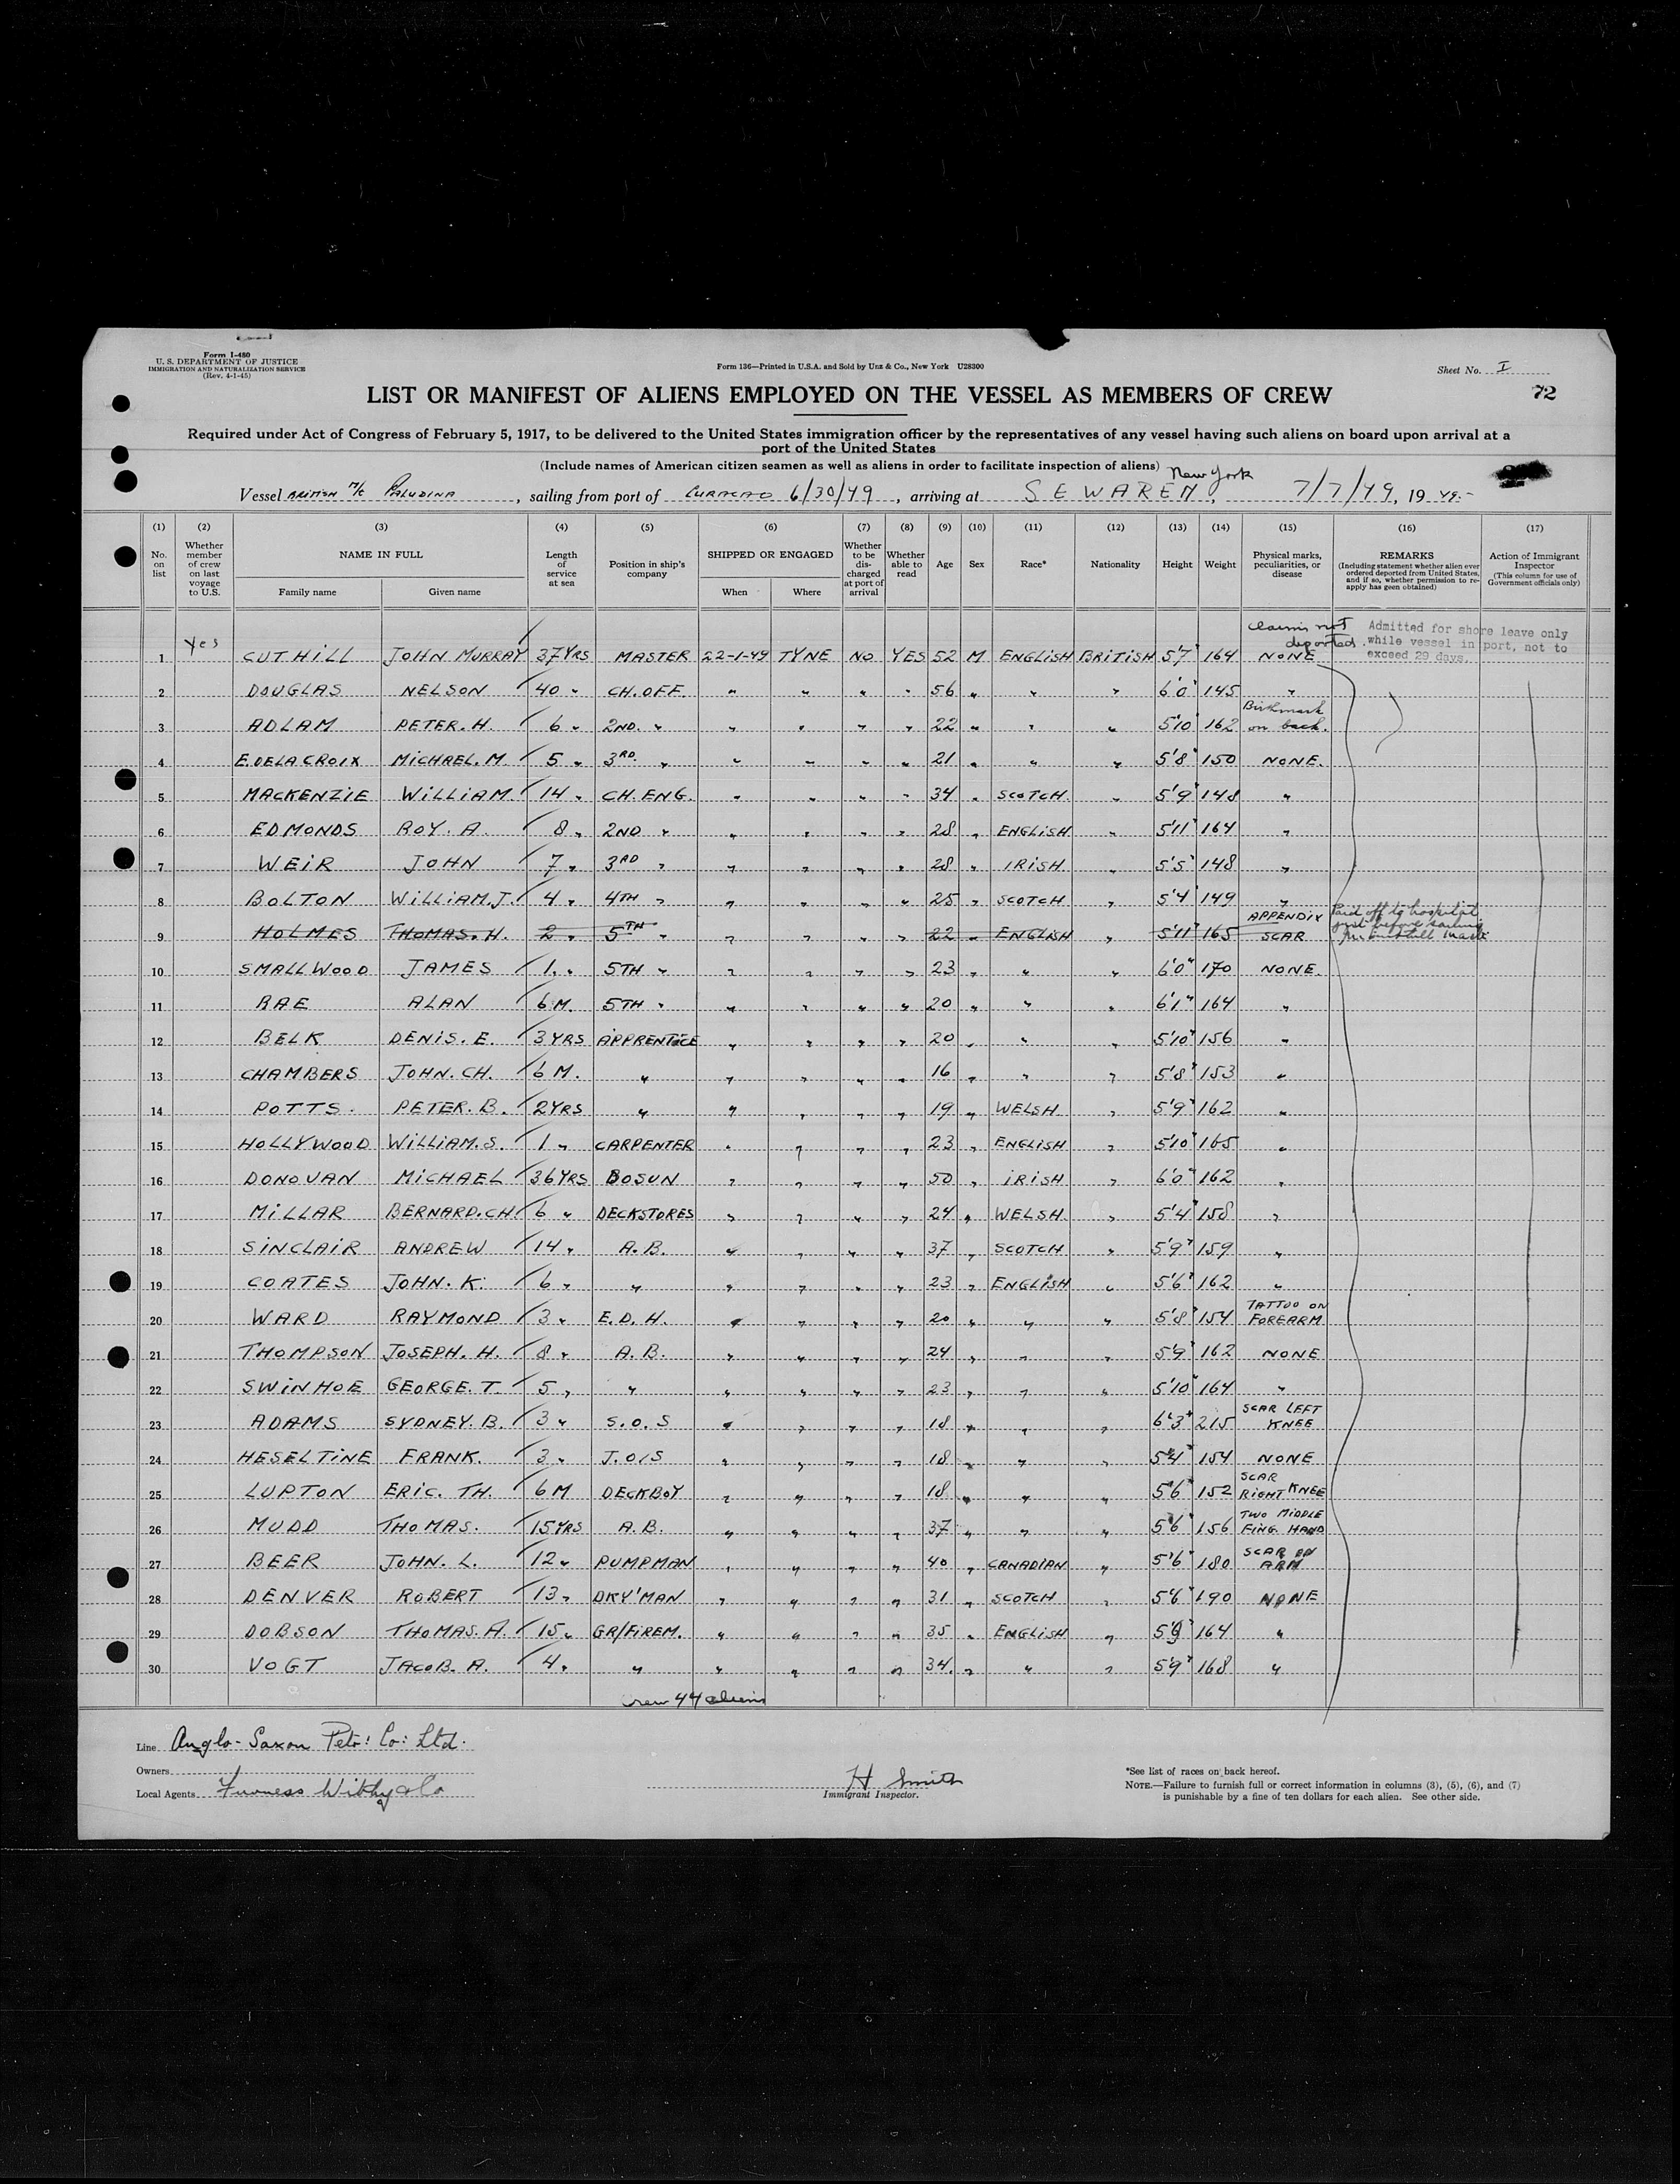 Form I-480
U. S. DEPARTMENT OF JUSTICE
IMMIGRATION AND NATURALIZATION SERVICE
(Rev. 4-1-45)
Form 136—Printed in U.S.A. and Sold by Unz & Co., New York U28300
Sheet No. I
72
LIST OR MANIFEST OF ALIENS EMPLOYED ON THE VESSEL AS MEMBERS OF CREW
Required under Act of Congress of February 5, 1917, to be delivered to the United States immigration officer by the representatives of any vessel having such aliens on board upon arrival at a
port of the United States
(Include names of American citizen seamen as well as aliens in order to facilitate inspection of aliens)
New York
Vessel BRITISH M/S PALUDINA, sailing from port of CURACAO 6/30/49, arriving at SEWAREN, 7/7/49, 19 49.-
(1) (2) (3) (4) (5) (6) (7) (8) (9) (10) (11) (12) (13) (14) (15) (16) (17)
No. on list
Whether member of crew on last voyage to U.S.
NAME IN FULL
Family name Given name
Length of service at sea
Position in ship's company
SHIPPED OR ENGAGED
When Where
Whether to be discharged at port of arrival
Whether able to read
Age
Sex
Race*
Nationality
Height
Weight
Physical marks, peculiarities, or disease
REMARKS
(Including statement whether alien ever ordered deported from United States, and if so, whether permission to reapply has geen obtained)
Action of Immigrant Inspector
(This column for use of Government officials only)
claims not deported.
Admitted for shore leave only
while vessel in port, not to
exceed 29 days.
1 Yes CUTHILL JOHN MURRAY 37YRS MASTER 22-1-49 TYNE NO YES 52 M ENGLISH BRITISH 5'7" 164 NONE
2 DOUGLAS NELSON 40 " CH. OFF. " " " " 56 " " " 6'0" 145 "
3 ADLAM PETER. H. 6 " 2ND. " " " " " 22 " " " 5'10" 162 Birthmark on back.
4 E. DELACROIX MICHAEL. M. 5 " 3RD. " " " " " 21 " " " 5'8" 150 NONE.
5 MACKENZIE WILLIAM. 14 " CH. ENG. " " " " 34 " SCOTCH. " 5'9" 148 "
6 EDMONDS ROY. A. 8 " 2ND " " " " " 28 " ENGLISH " 5'11" 164 "
7 WEIR JOHN 7 " 3RD " " " " " 28 " IRISH " 5'5" 148 "
8 BOLTON WILLIAM. J. 4 " 4TH " " " " " 25 " SCOTCH " 5'4" 149 "
9 HOLMES THOMAS. H. 2 " 5TH " " " " " 22 " ENGLISH " 5'11" 165 APPENDIX SCAR Paid off to hospital just before sailing
10 SMALLWOOD JAMES 1 " 5TH " " " " " 23 " " " 6'0" 170 NONE.
11 RAE ALAN 6 M. 5TH " " " " " 20 " " " 6'1" 164 "
12 BELK DENIS. E. 3YRS APPRENTICE " " " " 20 " " " 5'10" 156 "
13 CHAMBERS JOHN. CH. 6 M. " " " " " 16 " " " 5'8" 153 "
14 POTTS. PETER. B. 2YRS " " " " " 19 " WELSH. " 5'9" 162 "
15 HOLLYWOOD WILLIAM. S. 1 " CARPENTER " " " " 23 " ENGLISH " 5'10" 165 "
16 DONOVAN MICHAEL 36YRS BOSUN " " " " 50 " IRISH " 6'0" 162 "
17 MILLAR BERNARD. CH. 6 " DECKSTORES " " " " 24 " WELSH. " 5'4" 158 "
18 SINCLAIR ANDREW 14 " A. B. " " " " 37 " SCOTCH " 5'9" 159 "
19 COATES JOHN. K. 6 " " " " " " 23 " ENGLISH " 5'6" 162 "
20 WARD RAYMOND 3 " E. D. H. " " " " 20 " " " 5'8" 154 TATTOO ON FOREARM
21 THOMPSON JOSEPH. H. 8 " A. B. " " " " 24 " " " 5'9" 162 NONE
22 SWINHOE GEORGE. T. 5 " " " " " " 23 " " " 5'10" 164 "
23 ADAMS SYDNEY. B. 3 " S. O. S " " " " 18 " " " 6'3" 215 SCAR LEFT KNEE
24 HESELTINE FRANK. 3 " J. O/S " " " " 18 " " " 5'4" 154 NONE
25 LUPTON ERIC. TH. 6 M DECKBOY " " " " 18 " " " 5'6" 152 SCAR RIGHT KNEE
26 MUDD THOMAS. 15YRS A. B. " " " " 37 " " " 5'6" 156 TWO MIDDLE FING. HAND
27 BEER JOHN. L. 12 " PUMPMAN " " " " 40 " CANADIAN " 5'6" 180 SCAR ON ARM
28 DENVER ROBERT 13 " DKY'MAN " " " " 31 " SCOTCH " 5'6" 190 NONE
29 DOBSON THOMAS. A. 15 " GR/FIREM. " " " " 35 " ENGLISH " 5'9" 164 "
30 VOGT JACOB. A. 4 " " " " " " 34. " " " 5'9" 168 "
Crew 44 aliens
Line Anglo-Saxon Petr: Co: Ltd.
Owners
Local Agents Furness Withy & Co
H Smith
Immigrant Inspector.
*See list of races on back hereof.
NOTE.—Failure to furnish full or correct information in columns (3), (5), (6), and (7)
is punishable by a fine of ten dollars for each alien. See other side.